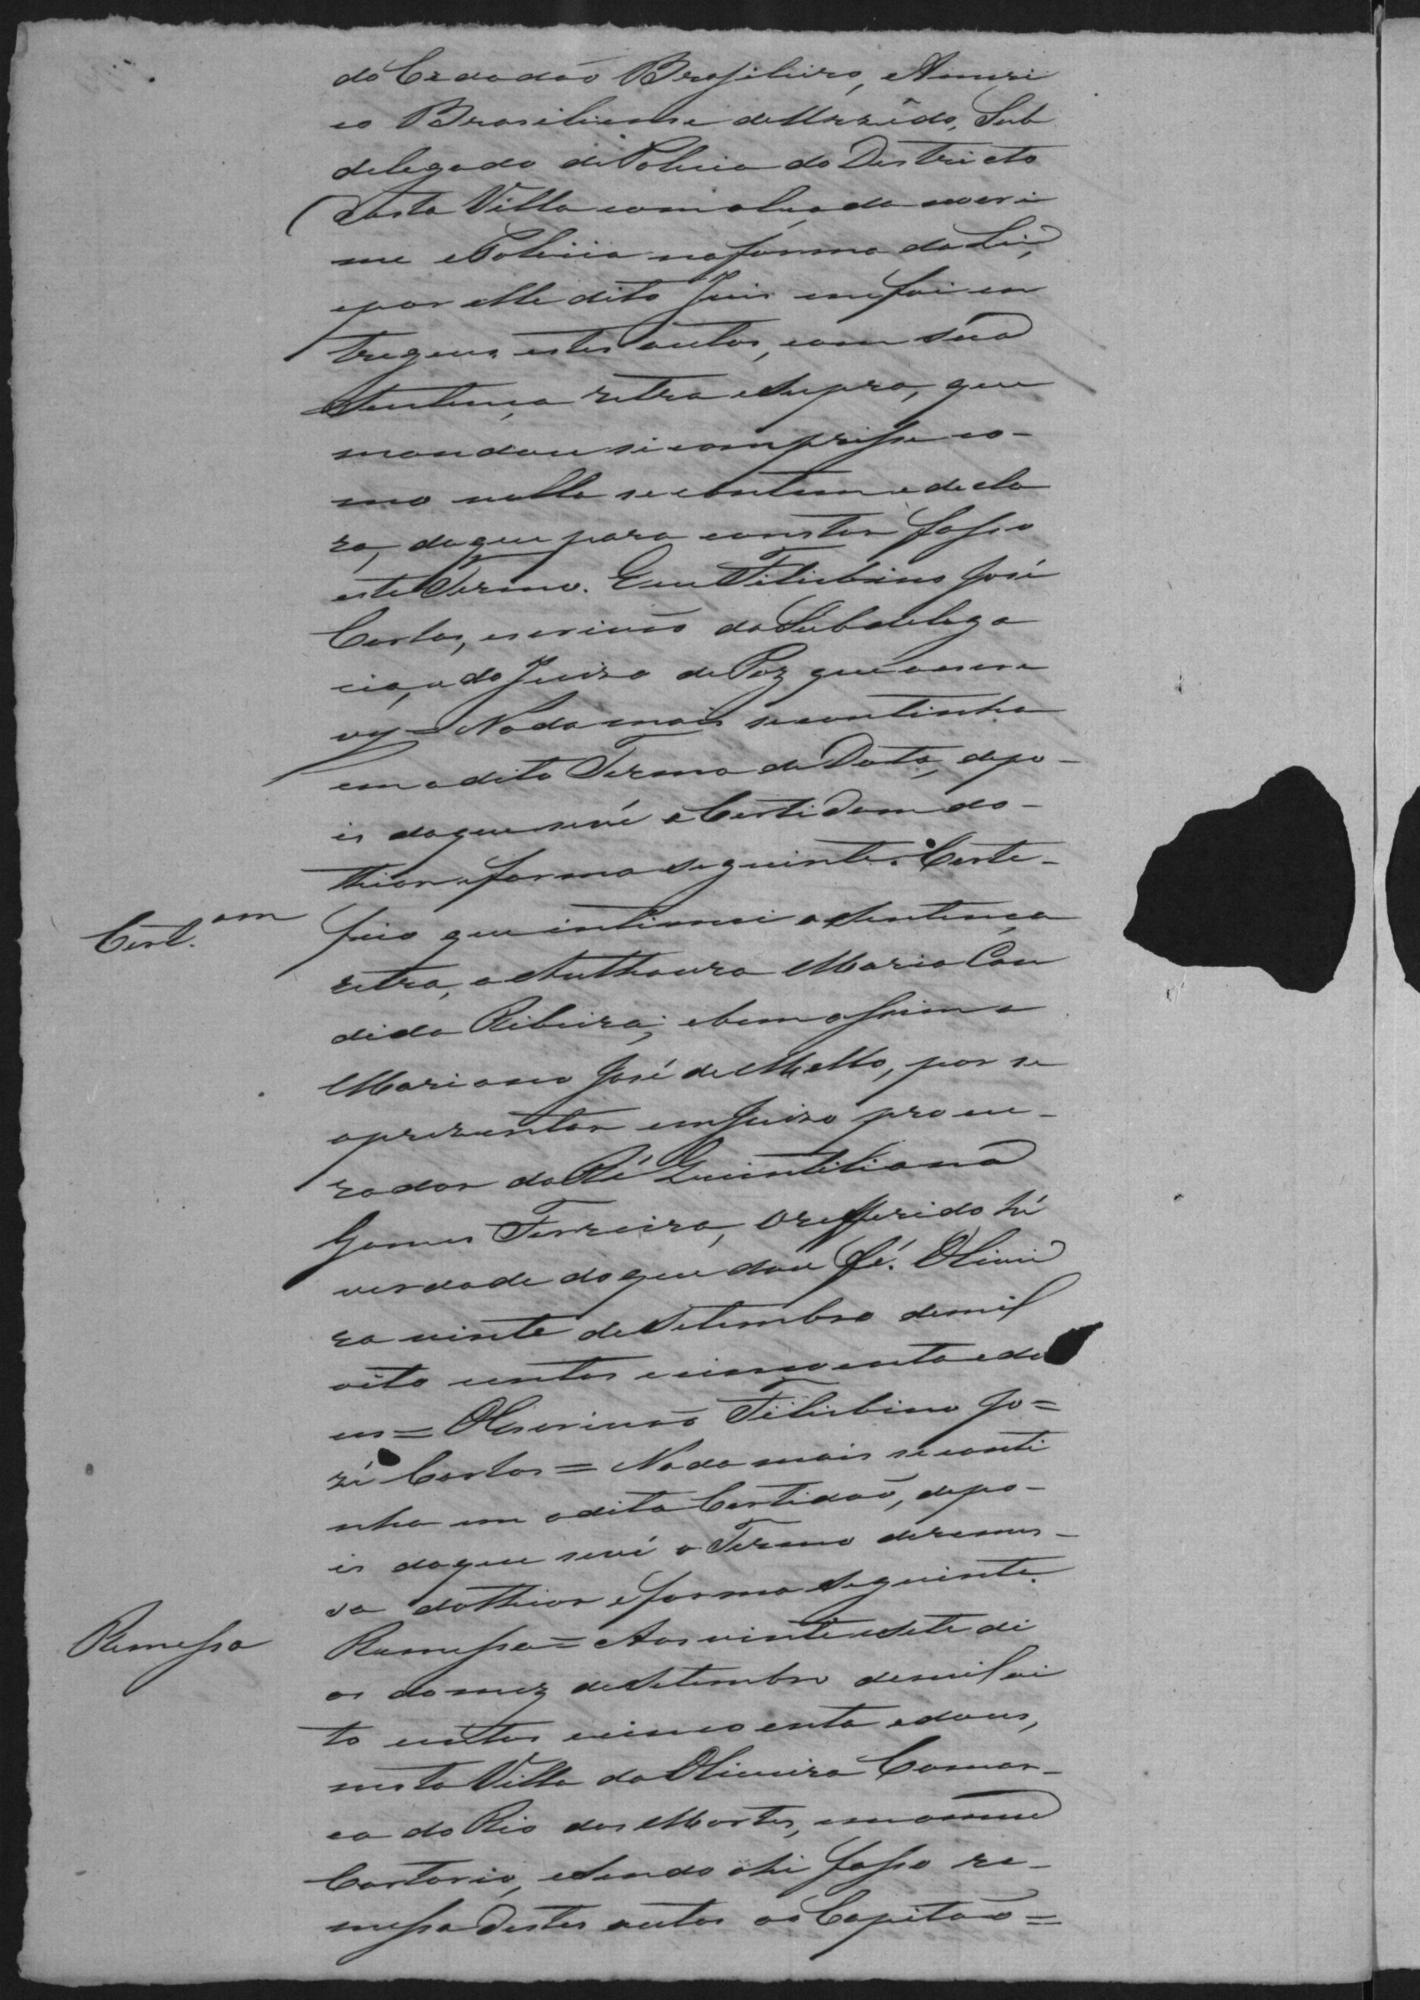 do Cidadão Brasileiro, Ameri
co Brasiliense de Urzêdo, Sub
delegado de Policia do Districto
desta Villa com alçada no cri
me e Policia na forma da Lei,
e por elle dito Juis me foi en
tregeus estes autos, com sua
Sentença retra e supra, que
mandou se comprisse co-
mo nella se contem e decla
ra, do que para constar fasso
este Termo. Eu Felisbino José
Carlos, escrivão da Subdelega
cia, e do Juizo de Paz que o escre
vy = Nada mais se continha
em o dito Termo de Data, depo-
is do que se vê a Certidam do
theor e forma seguinte. Certe-
Cert.am
fico que intimei a Sentença
retra, a Authoura Maria Can
dida Ribeira; e bem assim a
Mariano José de Mello, por se
aprezentar em Juizo procu-
rador da Ré Quintiliana
Gomes Ferreira, o refferido hé
verdade do que dou fé. Olivei
ra vinte de Setembro de mil
oito centos cincoenta e do
us = O Escrivão Felisbino Jo=
zé Carlos = Nada mais se conti
nha em a dita Certidão, depo-
is do que se vê o Termo de remes-
sa do theor e forma seguinte.
Remessa
Remessa = Aos vinte e sete di
as do mez de Setembro de mil oi
to centos cincoenta e dous,
nesta Villa da Oliveira Comar-
ca do Rio das Mortes, em o meu
Cartorio, e sendo ahi fasso re-
messa destes autos ao Capitão =